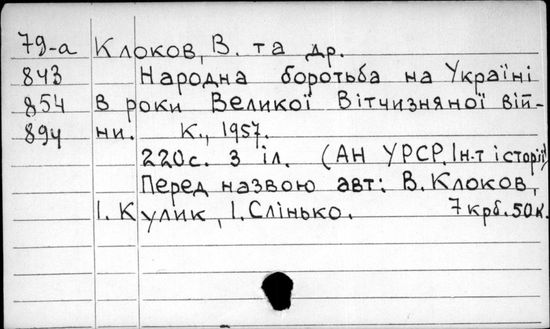 79-а Клоков, В. та др.
843 Народна боротьба на Україні
854 в роки Великої Вітчизняної вій-
894 ни. К., 1957.
220с. з іл. (АН УРСР. Ін-т історії)
Перед назвою авт: В. Клоков,
І. Кулик, І. Слінько. 7 крб. 50 к.